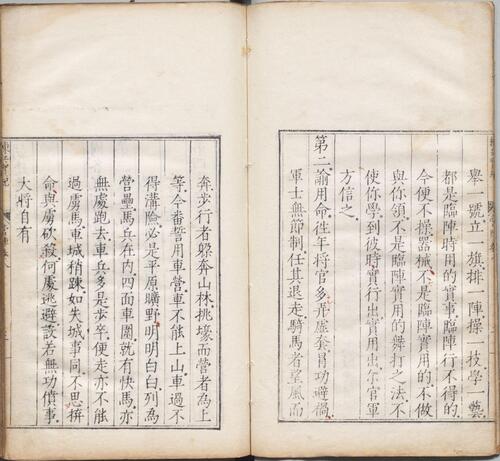 舉一號立一旗排一陣操一技學一藝
都是臨陣時用的實事臨陣行不得的
今便不操器械不是臨陣實用的不做
與你領不是臨陣實用的舞打之法不
使你學到彼時實行出實用出尔官軍
方信之
第二諭用命徃年將官多弄虛套冐功避禍
軍士無節制任其退走騎馬者望風而
奔步行者躱奔山林挑壕而營者為上
等今番誓用車營車不能上山車過不
得溝險必是平原曠野明明白白列為
營壘馬兵在内四面車圍就有快馬亦
無處跑去車兵多是步卒便走亦不能
過虜馬車城稍踈如失城事同不思拚
命與虜砍殺何處逃避設若無功僨事
大將自有